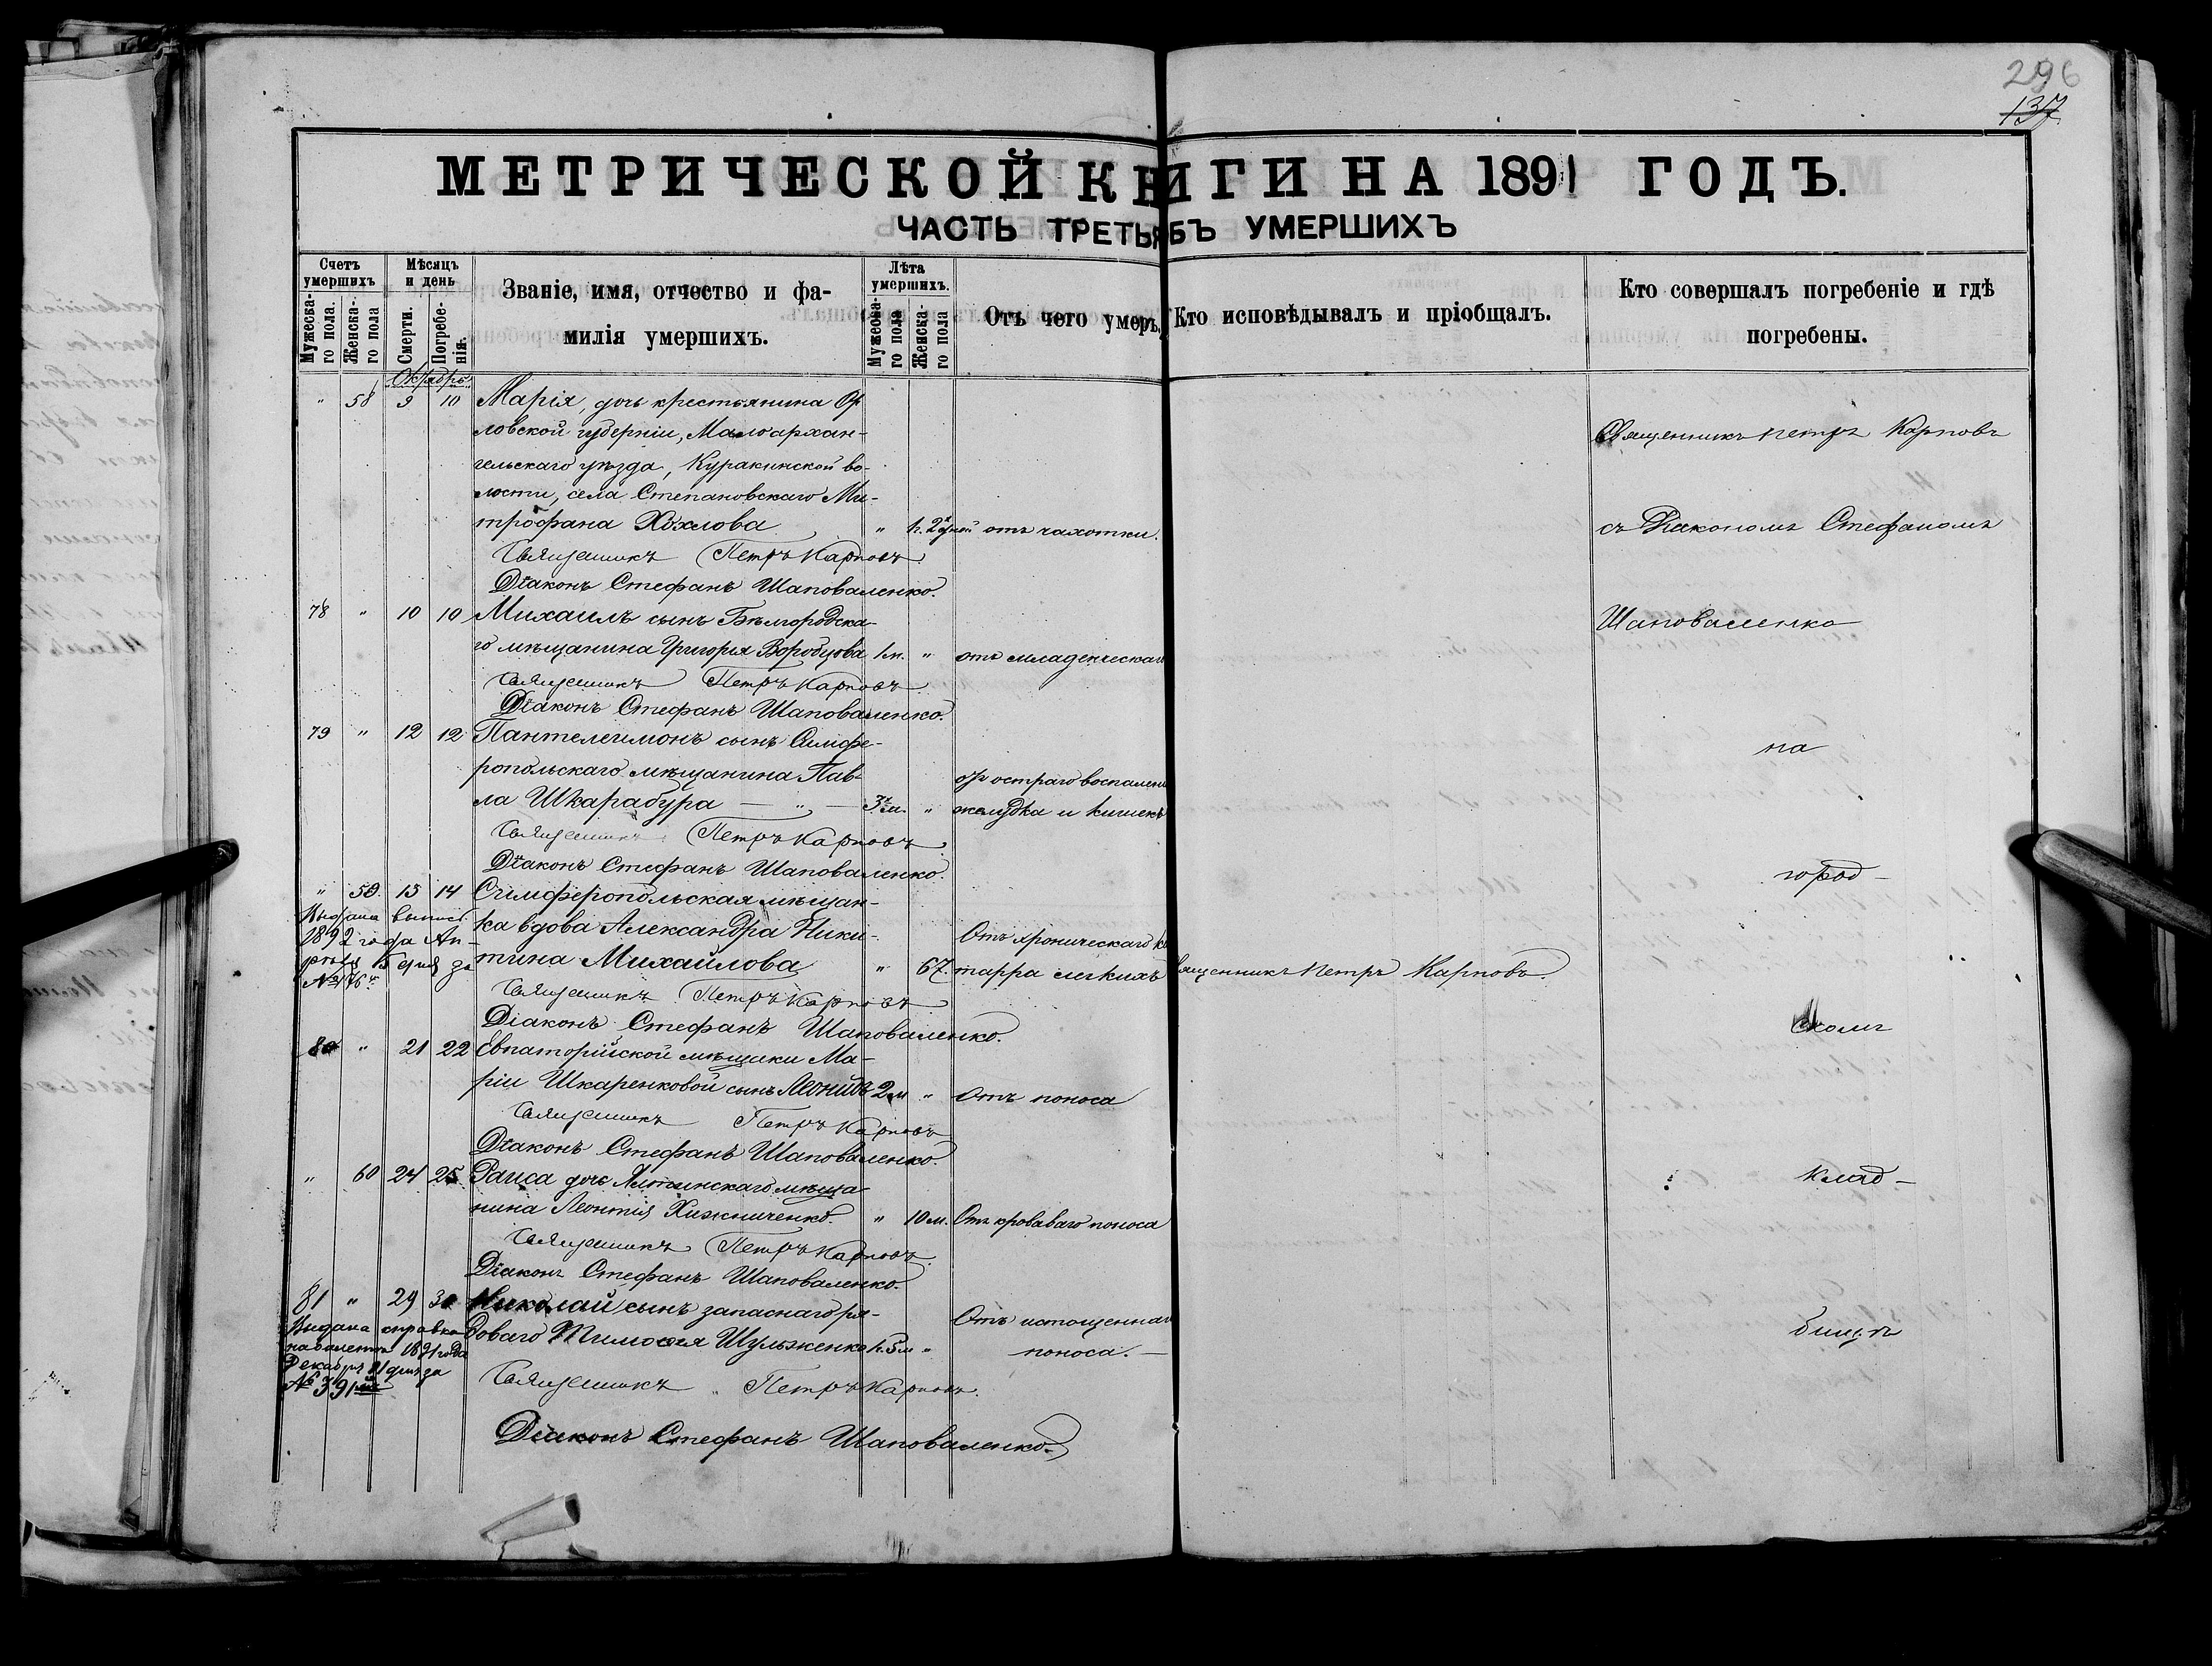 296
137
МЕТРИЧЕСКОЙ КНИГИ НА 1891 ГОДЪ.
ЧАСТЬ ТРЕТЬЯ
БЪ УМЕРШИХЪ
Счетъ умершихъ
Мужеска-го пола.
Женска-го пола
Мѣсяцъ и день
Смерти.
Погребе-нія.
Званіе, имя, отчество и фа-
милія умершихъ.
Лѣта умершихъ.
Мужеска-го пола
Женска-го пола
Отъ чего умеръ.
Кто исповѣдывалъ и пріобщалъ.
Кто совершалъ погребеніе и гдѣ
погребены.
Октябрь
" 58 9 10 Марія, дочь крестьянина Ор
ловской губерніи, Малоархан-
гельскаго уѣзда, Куракинской во-
лости, села Степановскаго Ми-
трофана Хохлова " отъ чахотки.
Священникъ Петръ Карповъ
Діаконъ Стефанъ Шаповаленко.
78 " 10 10 Михаилъ сынъ Бѣлгородска-
го мѣщанина Григорія Воробцова 1м. " отъ младенческаго
Священникъ Петръ Карповъ
Діаконъ Стефанъ Шаповаленко.
79 " 12 12 Пантелеимонъ сынъ Симфе-
ропольскаго мѣщанина Пав-
ла Шкарабура — " — 3м. " отъ остраго воспален
желудка и кишекъ
Священникъ Петръ Карповъ
Діаконъ Стефанъ Шаповаленко.
" 59 13 14 Симферопольская мѣщан-
ка вдова Александра Ники-
тина Михайлова " 67. Отъ хроническаго ка
тарра легкихъ
Выдана выпись
1892 года Ап-
рѣля 15 дня за
№ 176
Священникъ Петръ Карповъ
Діаконъ Стефанъ Шаповаленко.
80 " 21 22 Евпаторійской мѣщанки Ма-
ріи Шкаренковой сынъ Леонидъ 2м " Отъ поноса
Священникъ Петръ Карповъ
Діаконъ Стефанъ Шаповаленко.
" 60 24 25 Раиса дочь Ялтинскаго мѣща-
нина Леонтія Хижниченко. " 10м. Отъ кроваваго поноса
Священникъ Петръ Карповъ.
Діаконъ Стефанъ Шаповаленко.
81 " 29 30 Николай сынъ запаснаго ря-
доваго Тимоѳея Шульженко " Отъ истощеннаго
поноса. —
Выдана справка
1891 года
Декабря 21 дня за
№ 391
Священникъ Петръ Карповъ.
Діаконъ Стефанъ Шаповаленко.
Священникъ Петръ Карповъ.
Священникъ Петръ Карповъ
съ Діакономъ Стефаномъ
Шаповаленко
на
город-
скомъ
клад-
бищѣ